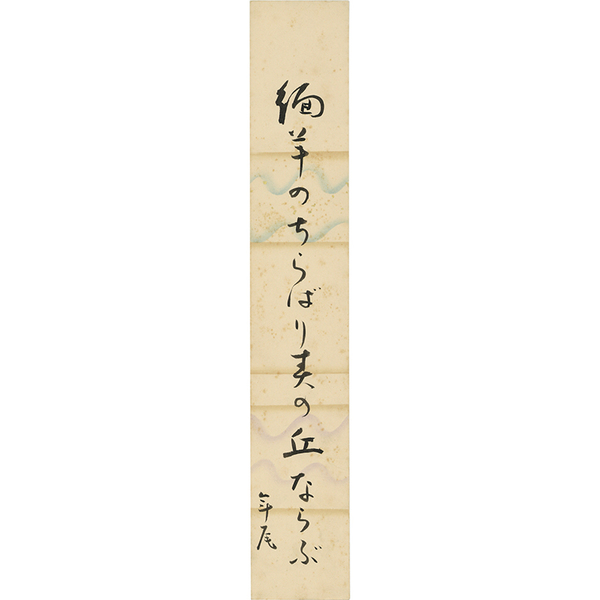 緬羊のちらばり夫の丘ならぶ
年尾